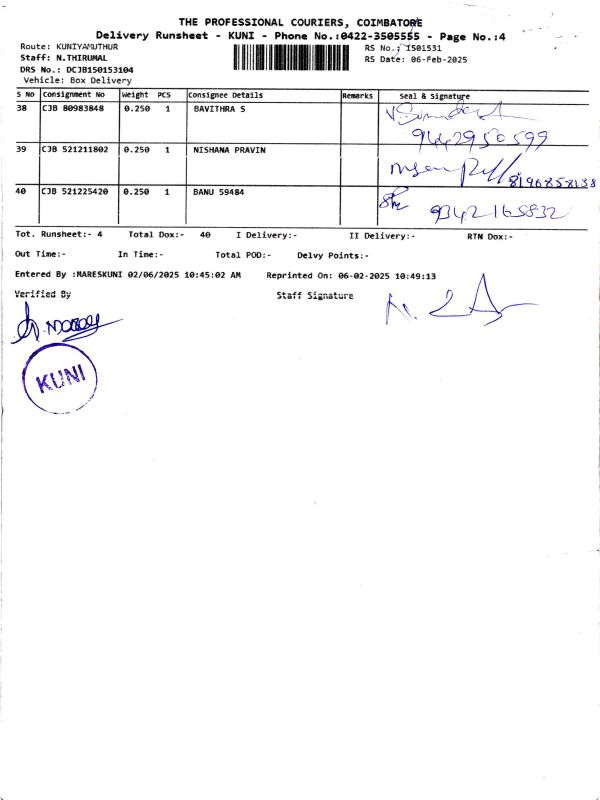 THE PROFESSIONAL COURIERS, COIMBATORE
Delivery Runsheet - KUNI - Phone No.:0422-3505555 - Page No.:4
Route: KUNIYAMUTHUR
RS No.: 1501531
Staff: N.THIRUMAL
RS Date: 06-Feb-2025
DRS No.: DCJB150153104
Vehicle: Box Delivery
S No Consignment No Weight PCS Consignee Details Remarks Seal & Signature
38 CJB 80983848 0.250 1 BAVITHRA S
9442950599
39 CJB 521211802 0.250 1 NISHANA PRAVIN
8196858138
40 CJB 521225420 0.250 1 BANU 59484
9342165832
Tot. Runsheet:- 4 Total Dox:- 40 I Delivery:- II Delivery:- RTN Dox:-
Out Time:- In Time:- Total POD:- Delvy Points:-
Entered By :MARESKUNI 02/06/2025 10:45:02 AM Reprinted On: 06-02-2025 10:49:13
Verified By Staff Signature
KUNI